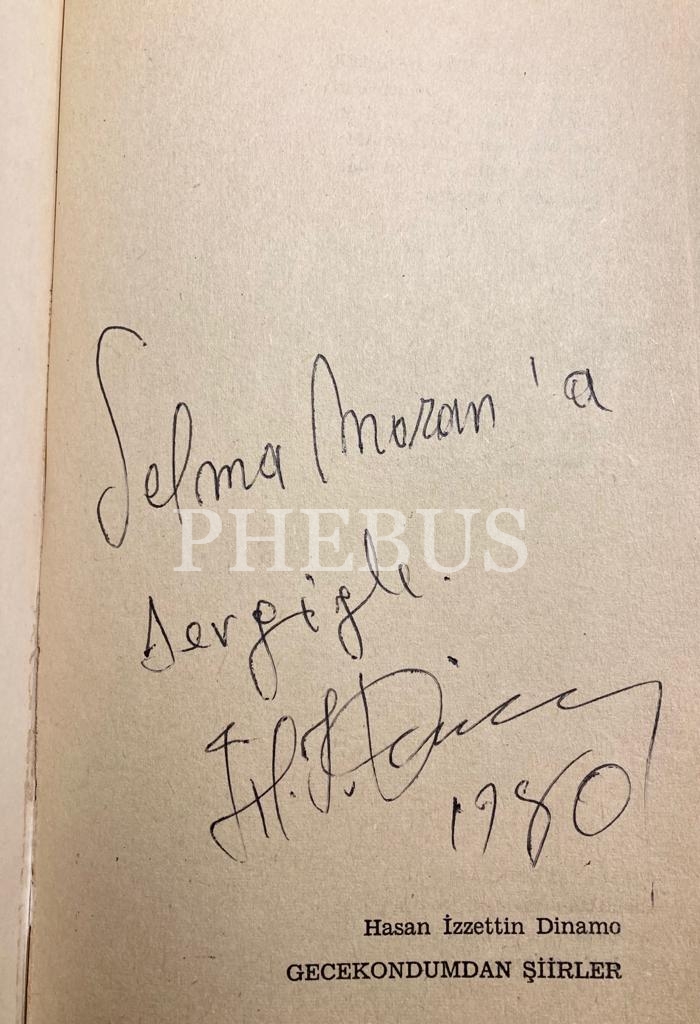 Selma Moran'a
PHEBUS
sevgiyle.
H. İ. Dinamo
1980
Hasan İzzettin Dinamo
GECEKONDUMDAN ŞİİRLER